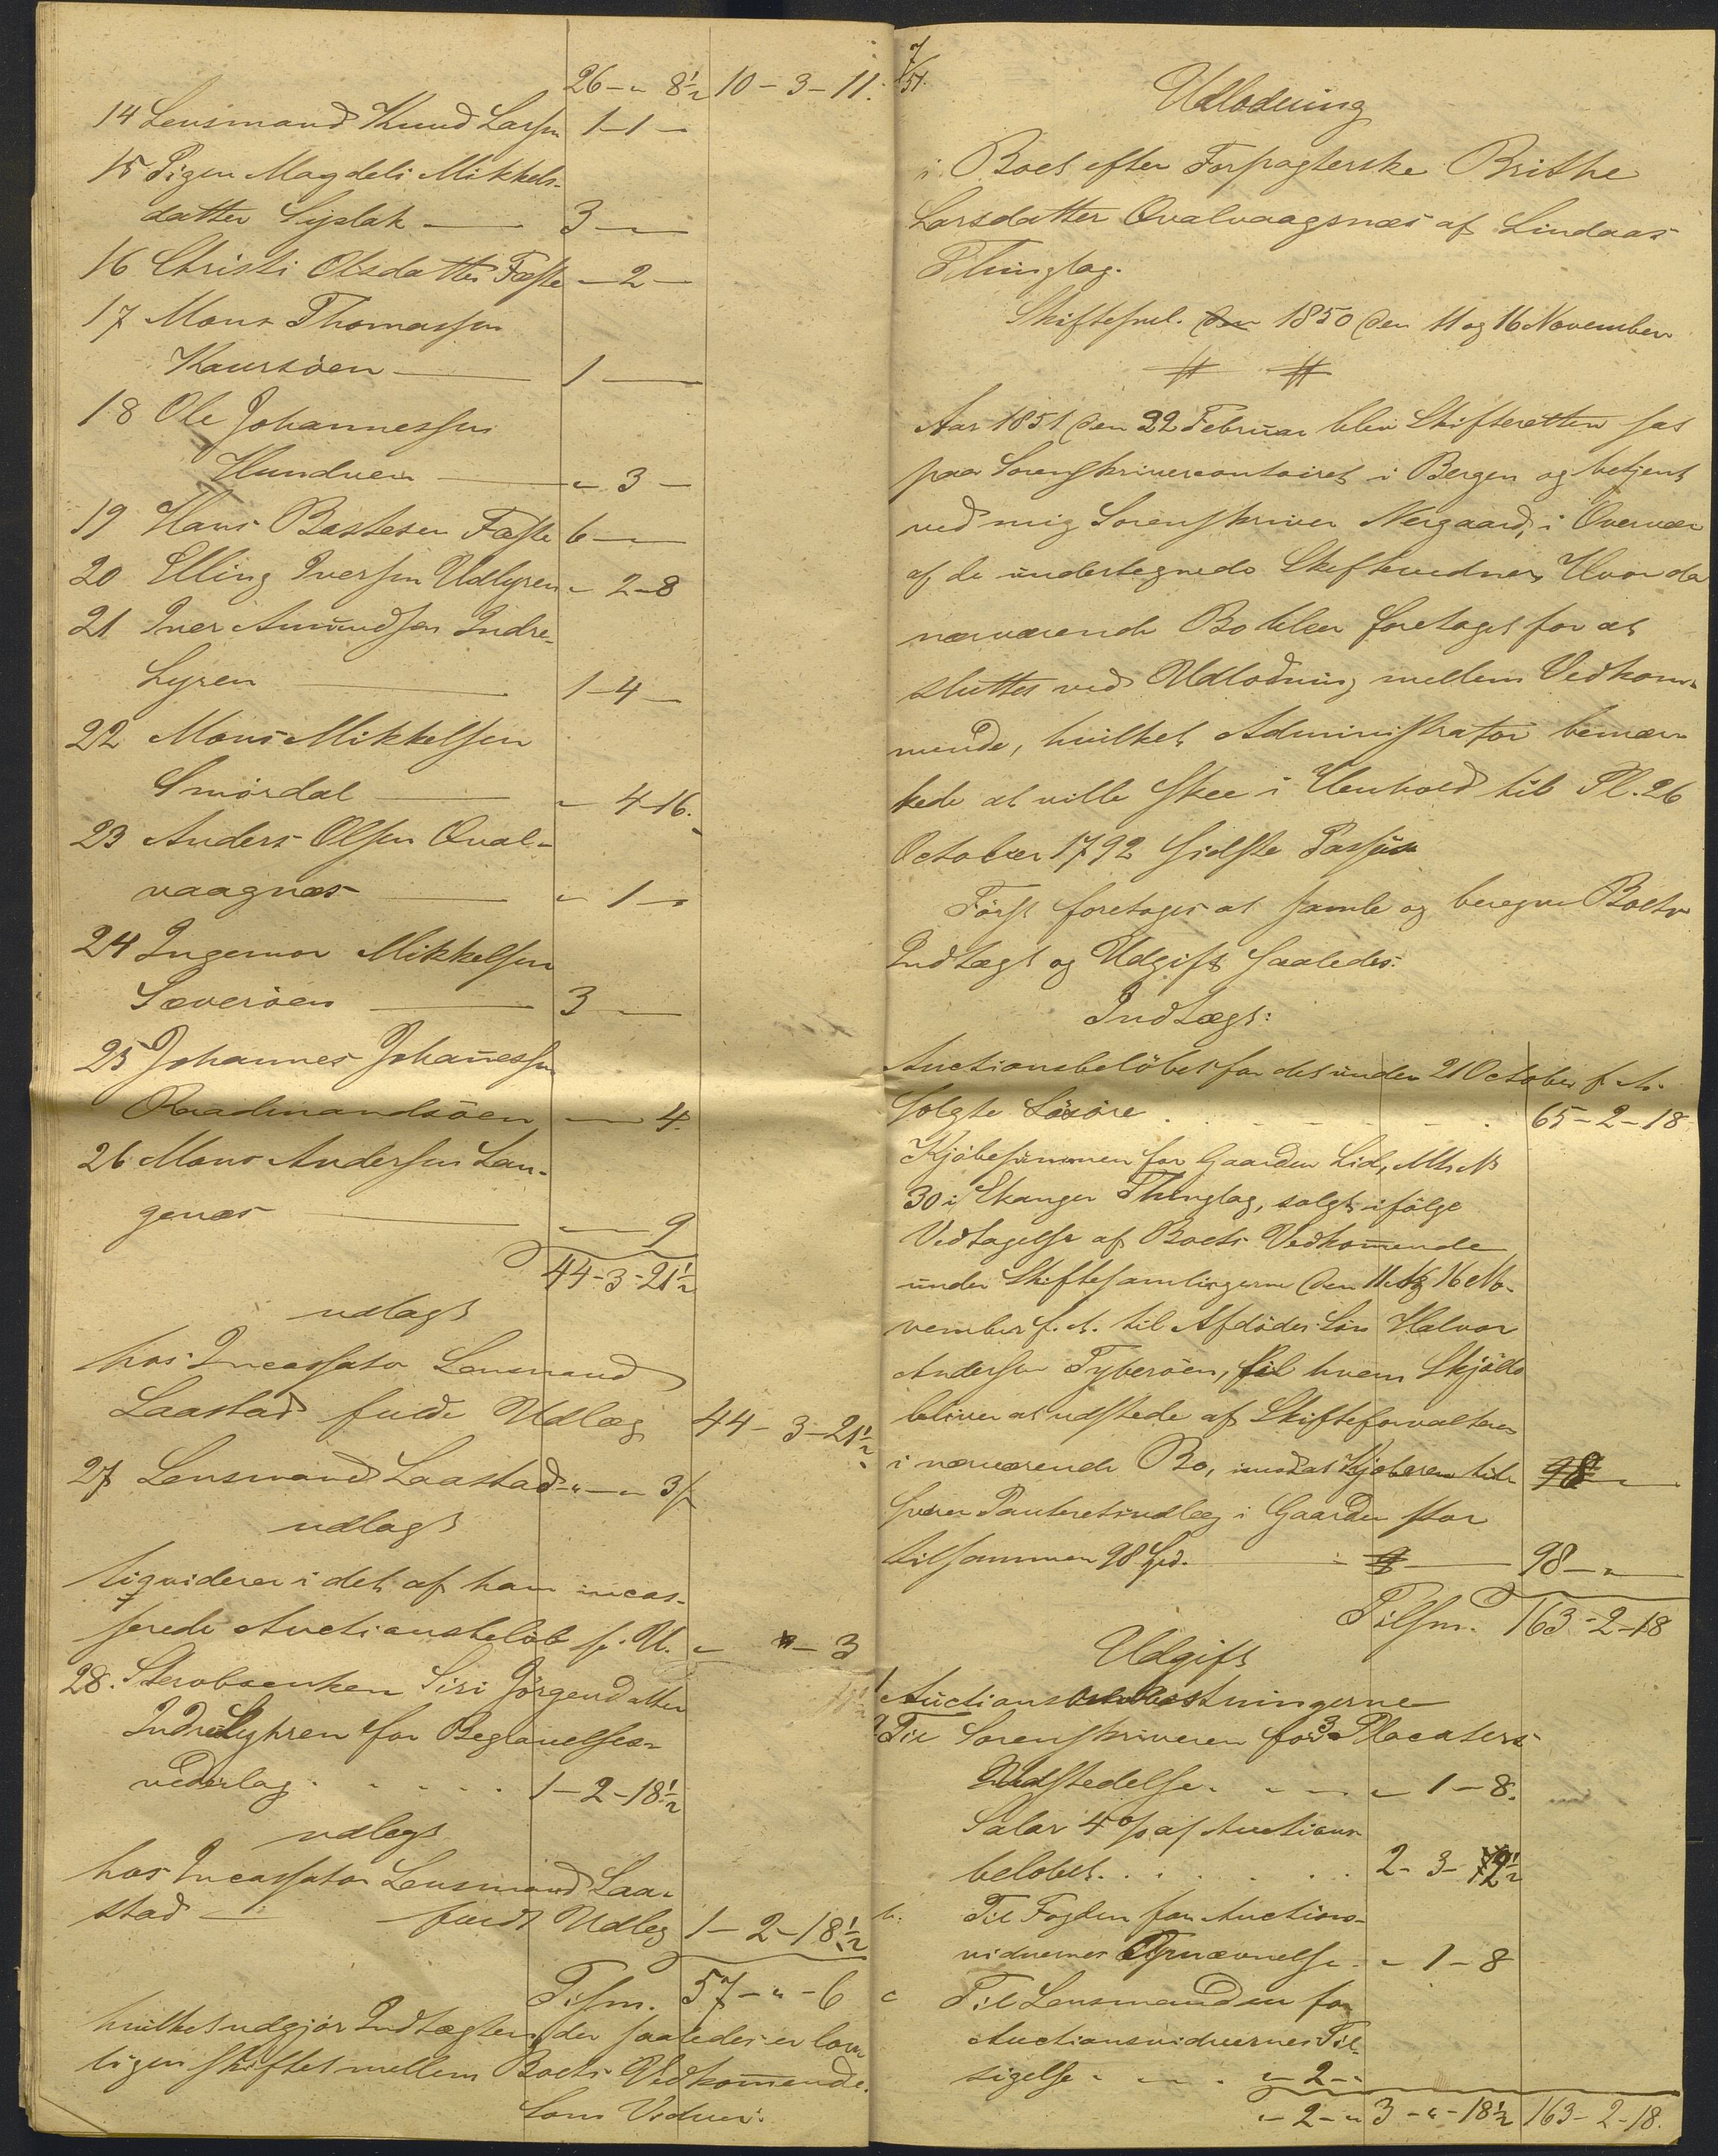 26 - " 8½ 10 - 3 - 11.
14 Lensmand Knud Larsen 1-1 -
15 Pigen Magdeli Mikkels-
datter Syslak — 3 —
16 Christi Olsdatter Fæste - 2 -
17 Mons Thomassen
Kaursöen — 1 —
18 Ole Johannessen
Hundven — " 3 -
19 Hans Bastesen Fæste 6 —
20 Elling Iversen Udlyren - 2-8
21 Iver Amundsen Indre-
Lyren — 1-4 -
22 Mons Mikkelsen
Smördal — " 4-16.
23 Anders Olsen Qval-
vaagnæs — " 1 -
24 Ingemor Mikkelsen
Sæveröen — 3 —
25 Johannes Johannessen
Raadmandsöen — 4.
26 Mons Andersen Lan-
genæs — 9
44-3-21½
udlagt
hos Incassator Lensmand
Laastad fuldt Udlæg 44-3-21½
27 Lensmand Laastad - " - " 3ſ
udlagt
liqviderer i det af ham incas-
serede Auctionsbelöb s. U. " " - 3
28. Sterobsenken Siri Jörgensdatter
Indre Lyhren for Begravelses-
vederlag . . . . . 1-2-18½
udlagt
hos Incassator Lensmand Laa-
stad — fuldt Udlæg 1-2-18½
Tilsm. 57 - " - 6
hvilket udgjör Indtægten, der saaledes er lov-
ligen skiftet mellem Boets Vedkommende.
Som Vidner:
7/51.
Udlodning
i Boet efter Forpagterske Brithe
Larsdatter Qvalvaagsnæs af Lindaas
Thinglag.
Skiftesml. den 1850 den 11 og 16 November
# #
Aar 1851 den 22 Februar blev Skifteretten sat
paa Sorenskrivercontoiret i Bergen og betjent
ved mig Sorenskriver Nergaard, i Overvær
af de undertegnede Skiftevidner, Hvor da
nærværende Bo blev foretaget for at
sluttes ved Udlodning mellem Vedkom-
mende, hvilket Administrator bemær-
kede at ville skee i Henhold til Pl. 26
October 1792 sidste Passus
Först foretoges at samle og beregne Boets
Indtægt og Udgift saaledes:
Indtægt:
Auctionsbelöbet for det under 21 October f. A.
solgte Lösöre . . . . . . 65-2-18
Kjöbesummen for Gaarden Lid, Mt. No
30 i Skanger Thinglag, solgt ifölge
Vedtagelse af Boets Vedkommende
under Skiftesamlingerne den 11 og 16 No-
vember f. A. til Afdödes Sön Halvor
Andersen Tyberöen, til hvem Skjöde
bliver at udstede af Skifteforvalteren
i nærværende Bo, imod at Kjöberen til- 98 -
svarer Panteretsudlæg i Gaarden stor
tilsammen 98 Spd. — 98 - " -
Tilsm. 163-2-18
Udgift
1 Auctionsomkostningerne
a. Til Sorenskriveren for 3 Placaters
Udstedelse . . " 1-8.
Salar 4 % af Auctions
belöbet . . . . . 2-3-2½
b. Til Fogden for Auctions-
vidnernes Opnævnelse . " 1-8
c Til Lensmanden for
Auctionsvidnernes Til-
sigelse . . . " 2 - "
" - 2 - " 3 - " - 18½ 163-2-18.